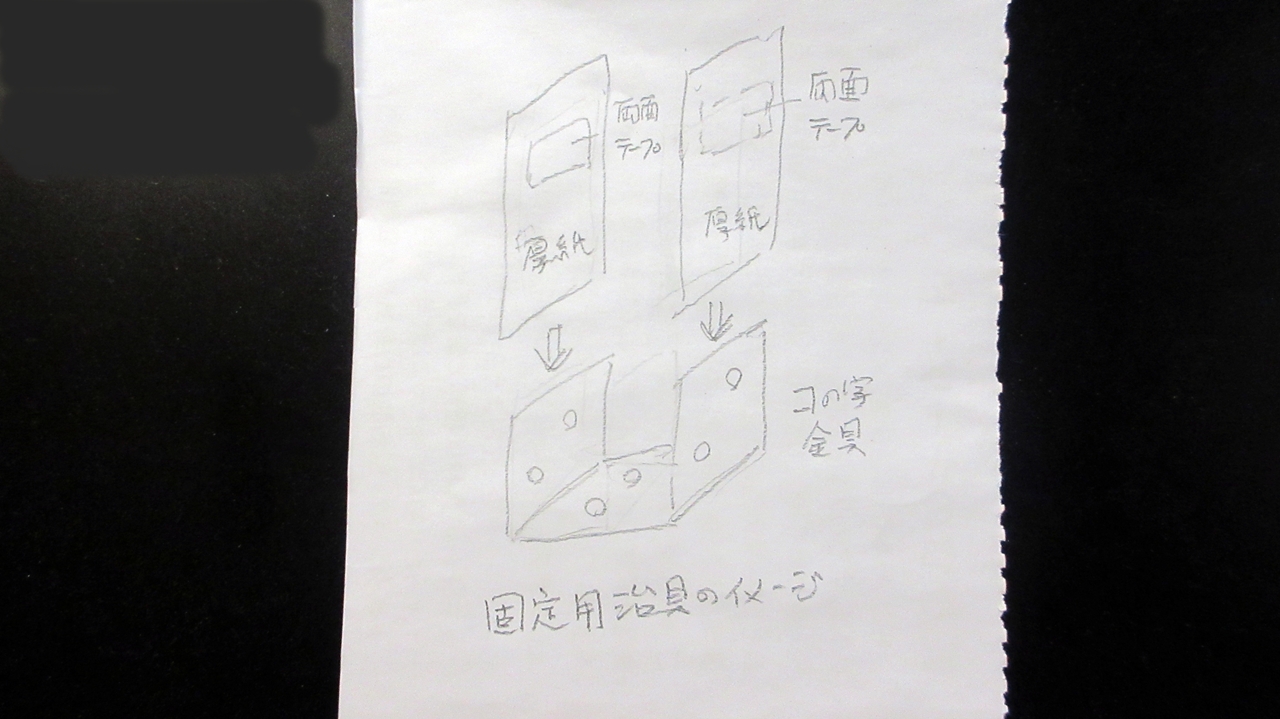 両面
テープ
両面
テープ
厚紙
厚紙
コの字
金具
固定用治具のイメージ